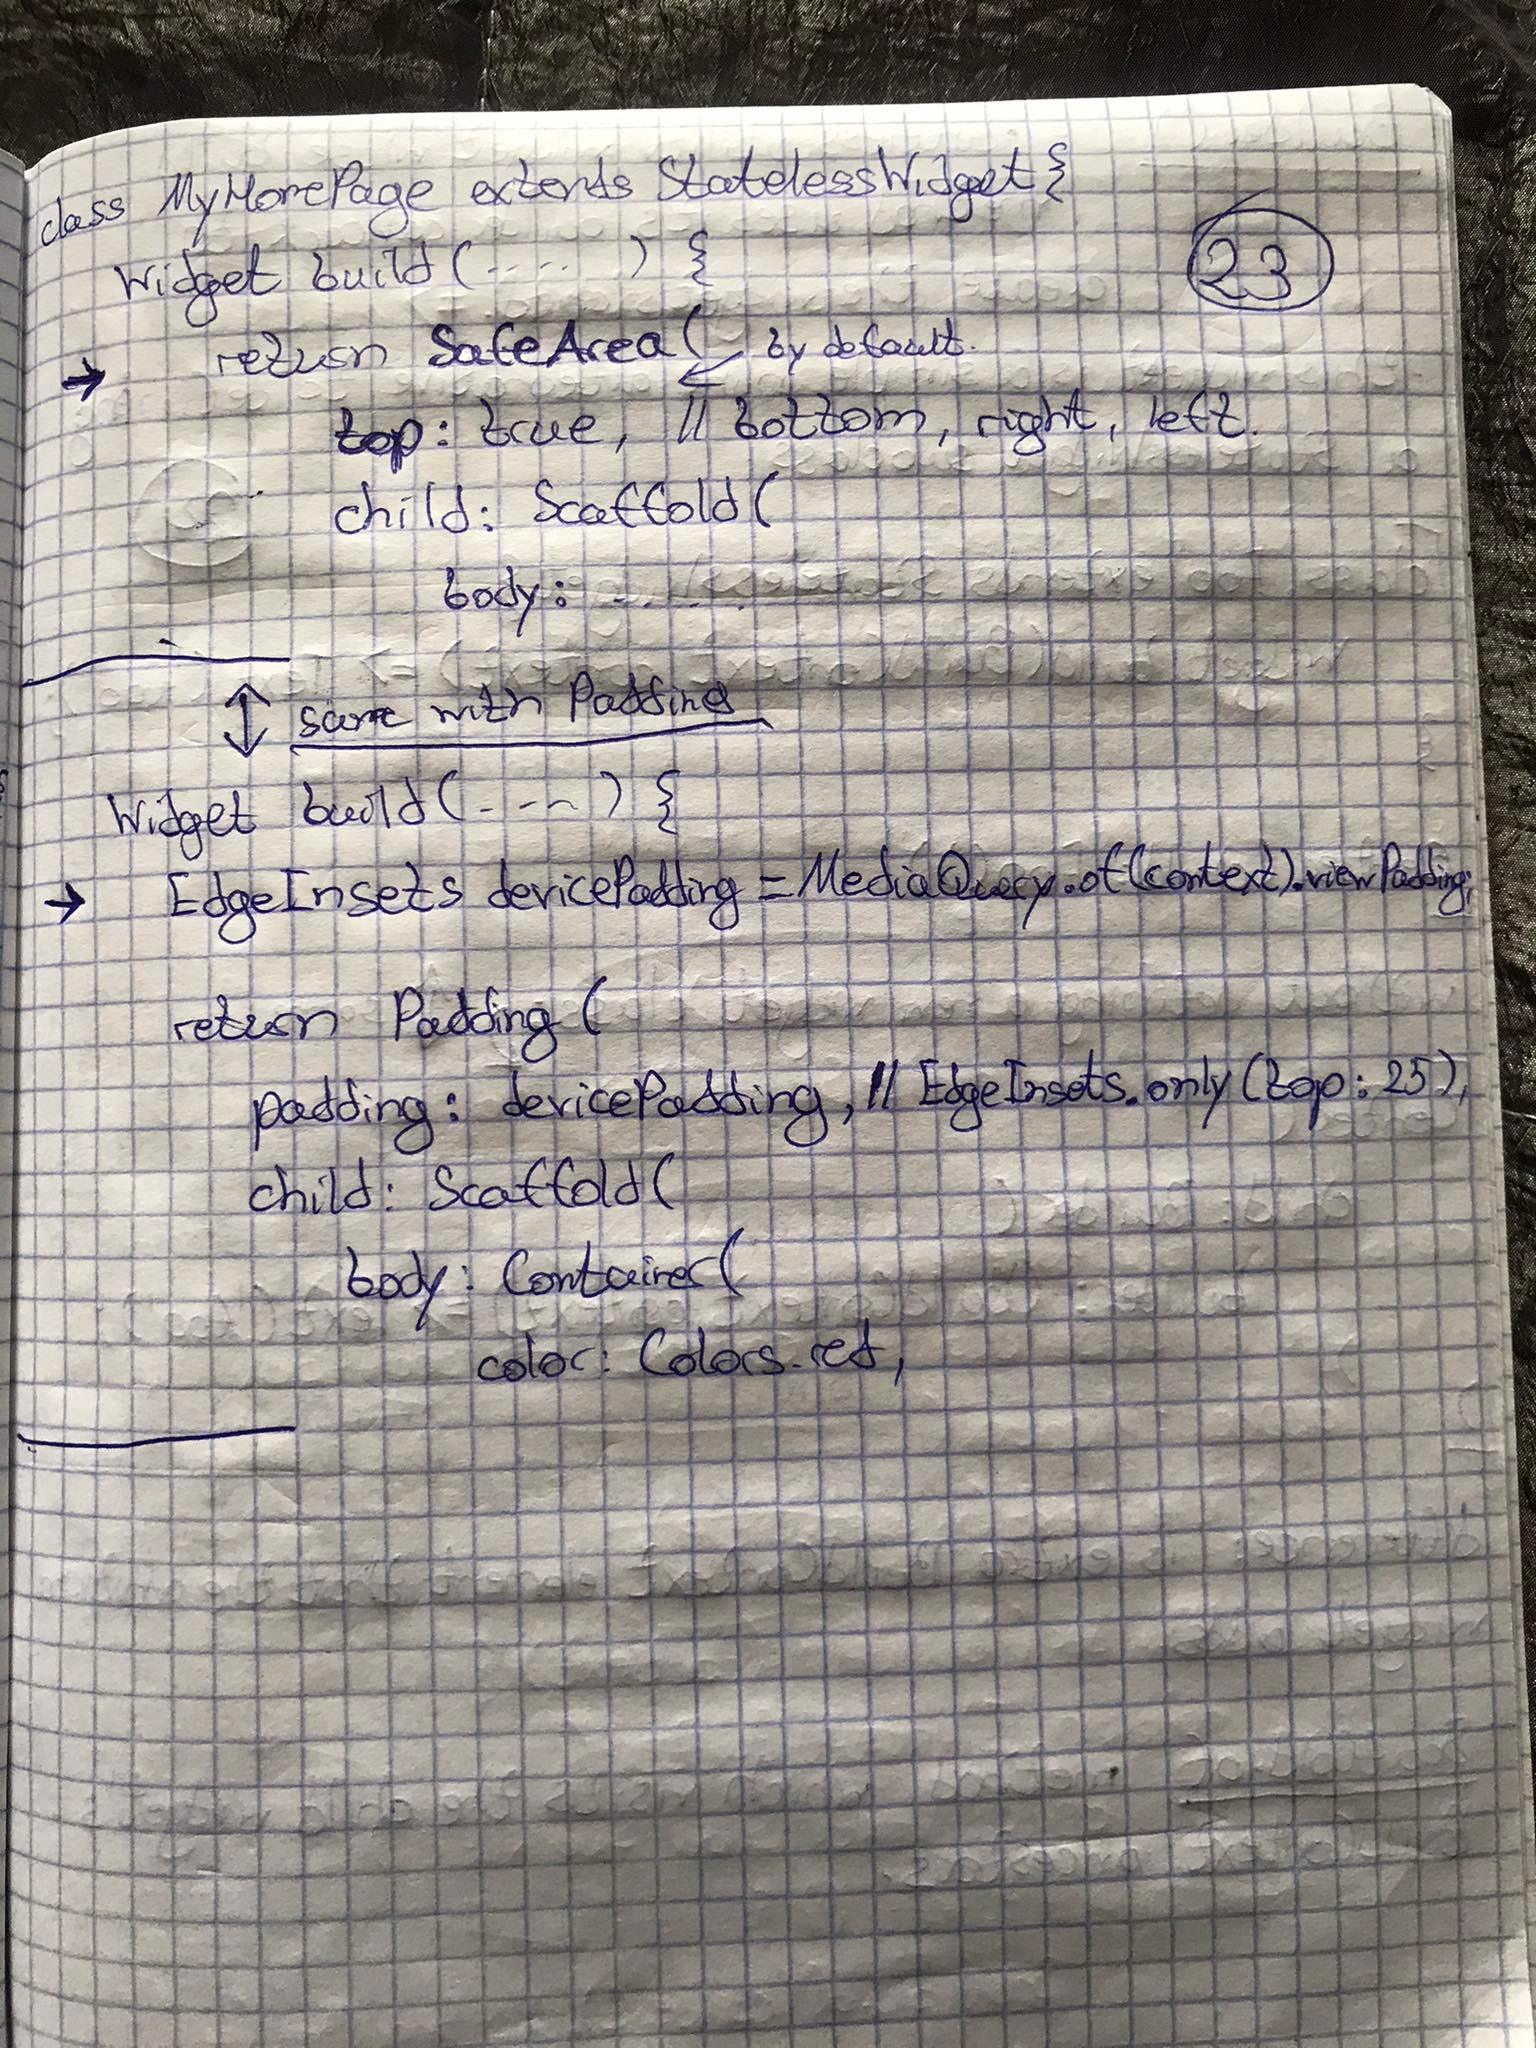 class MyHomePage extends StatelessWidget {
23
Widget build(....) {
return SafeArea( by default.
top: true, // bottom, right, left.
child: Scaffold(
body: ......
same with Padding
Widget build(....) {
EdgeInsets devicePadding = MediaQuery.of(context).viewPadding;
return Padding(
padding: devicePadding, // EdgeInsets.only(top: 25),
child: Scaffold(
body: Container(
color: Colors.red,